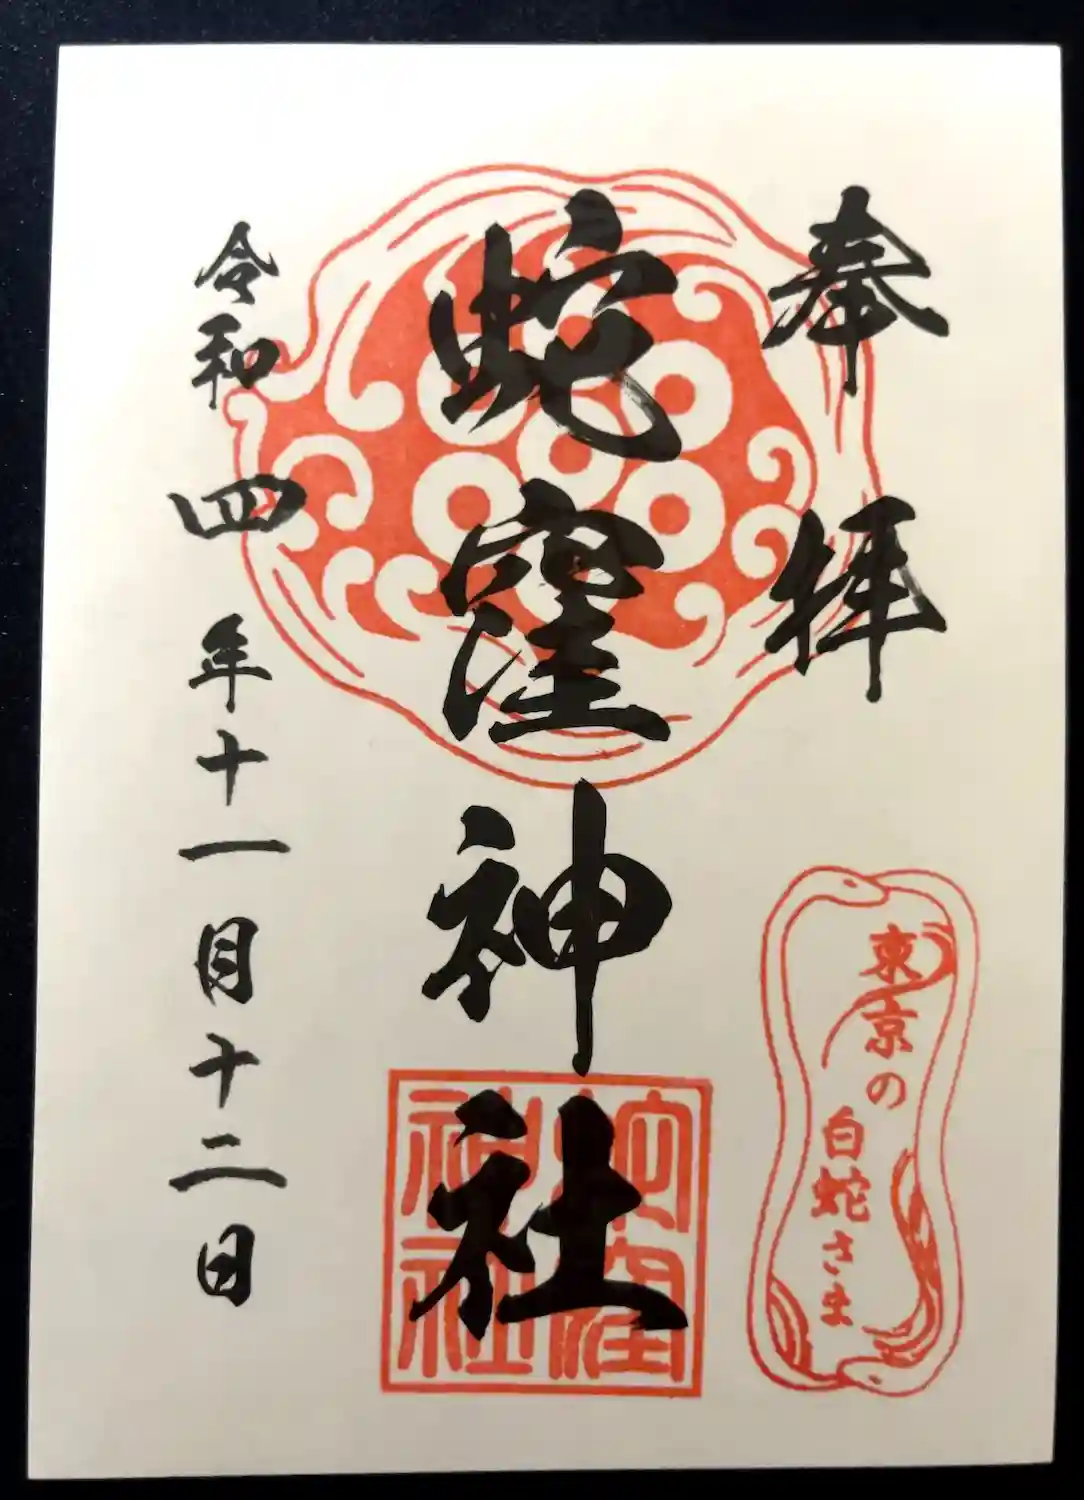 奉拝
蛇窪神社
令和四年十一月十二日
東京の
白蛇さま
蛇窪
神社